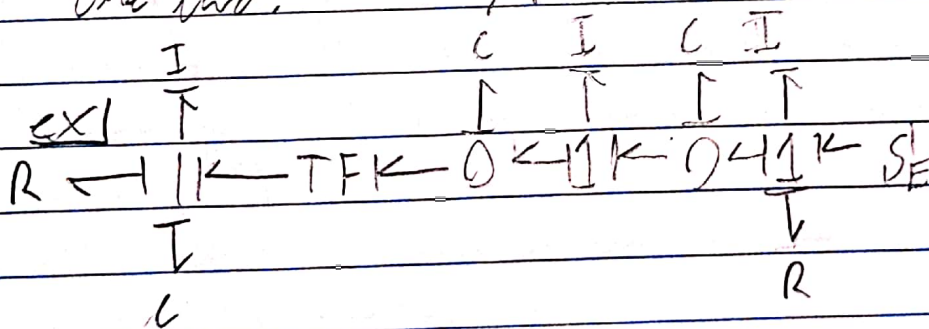 I C I C I
ex1
R 1 TF 0 1 0 1 SE
C R